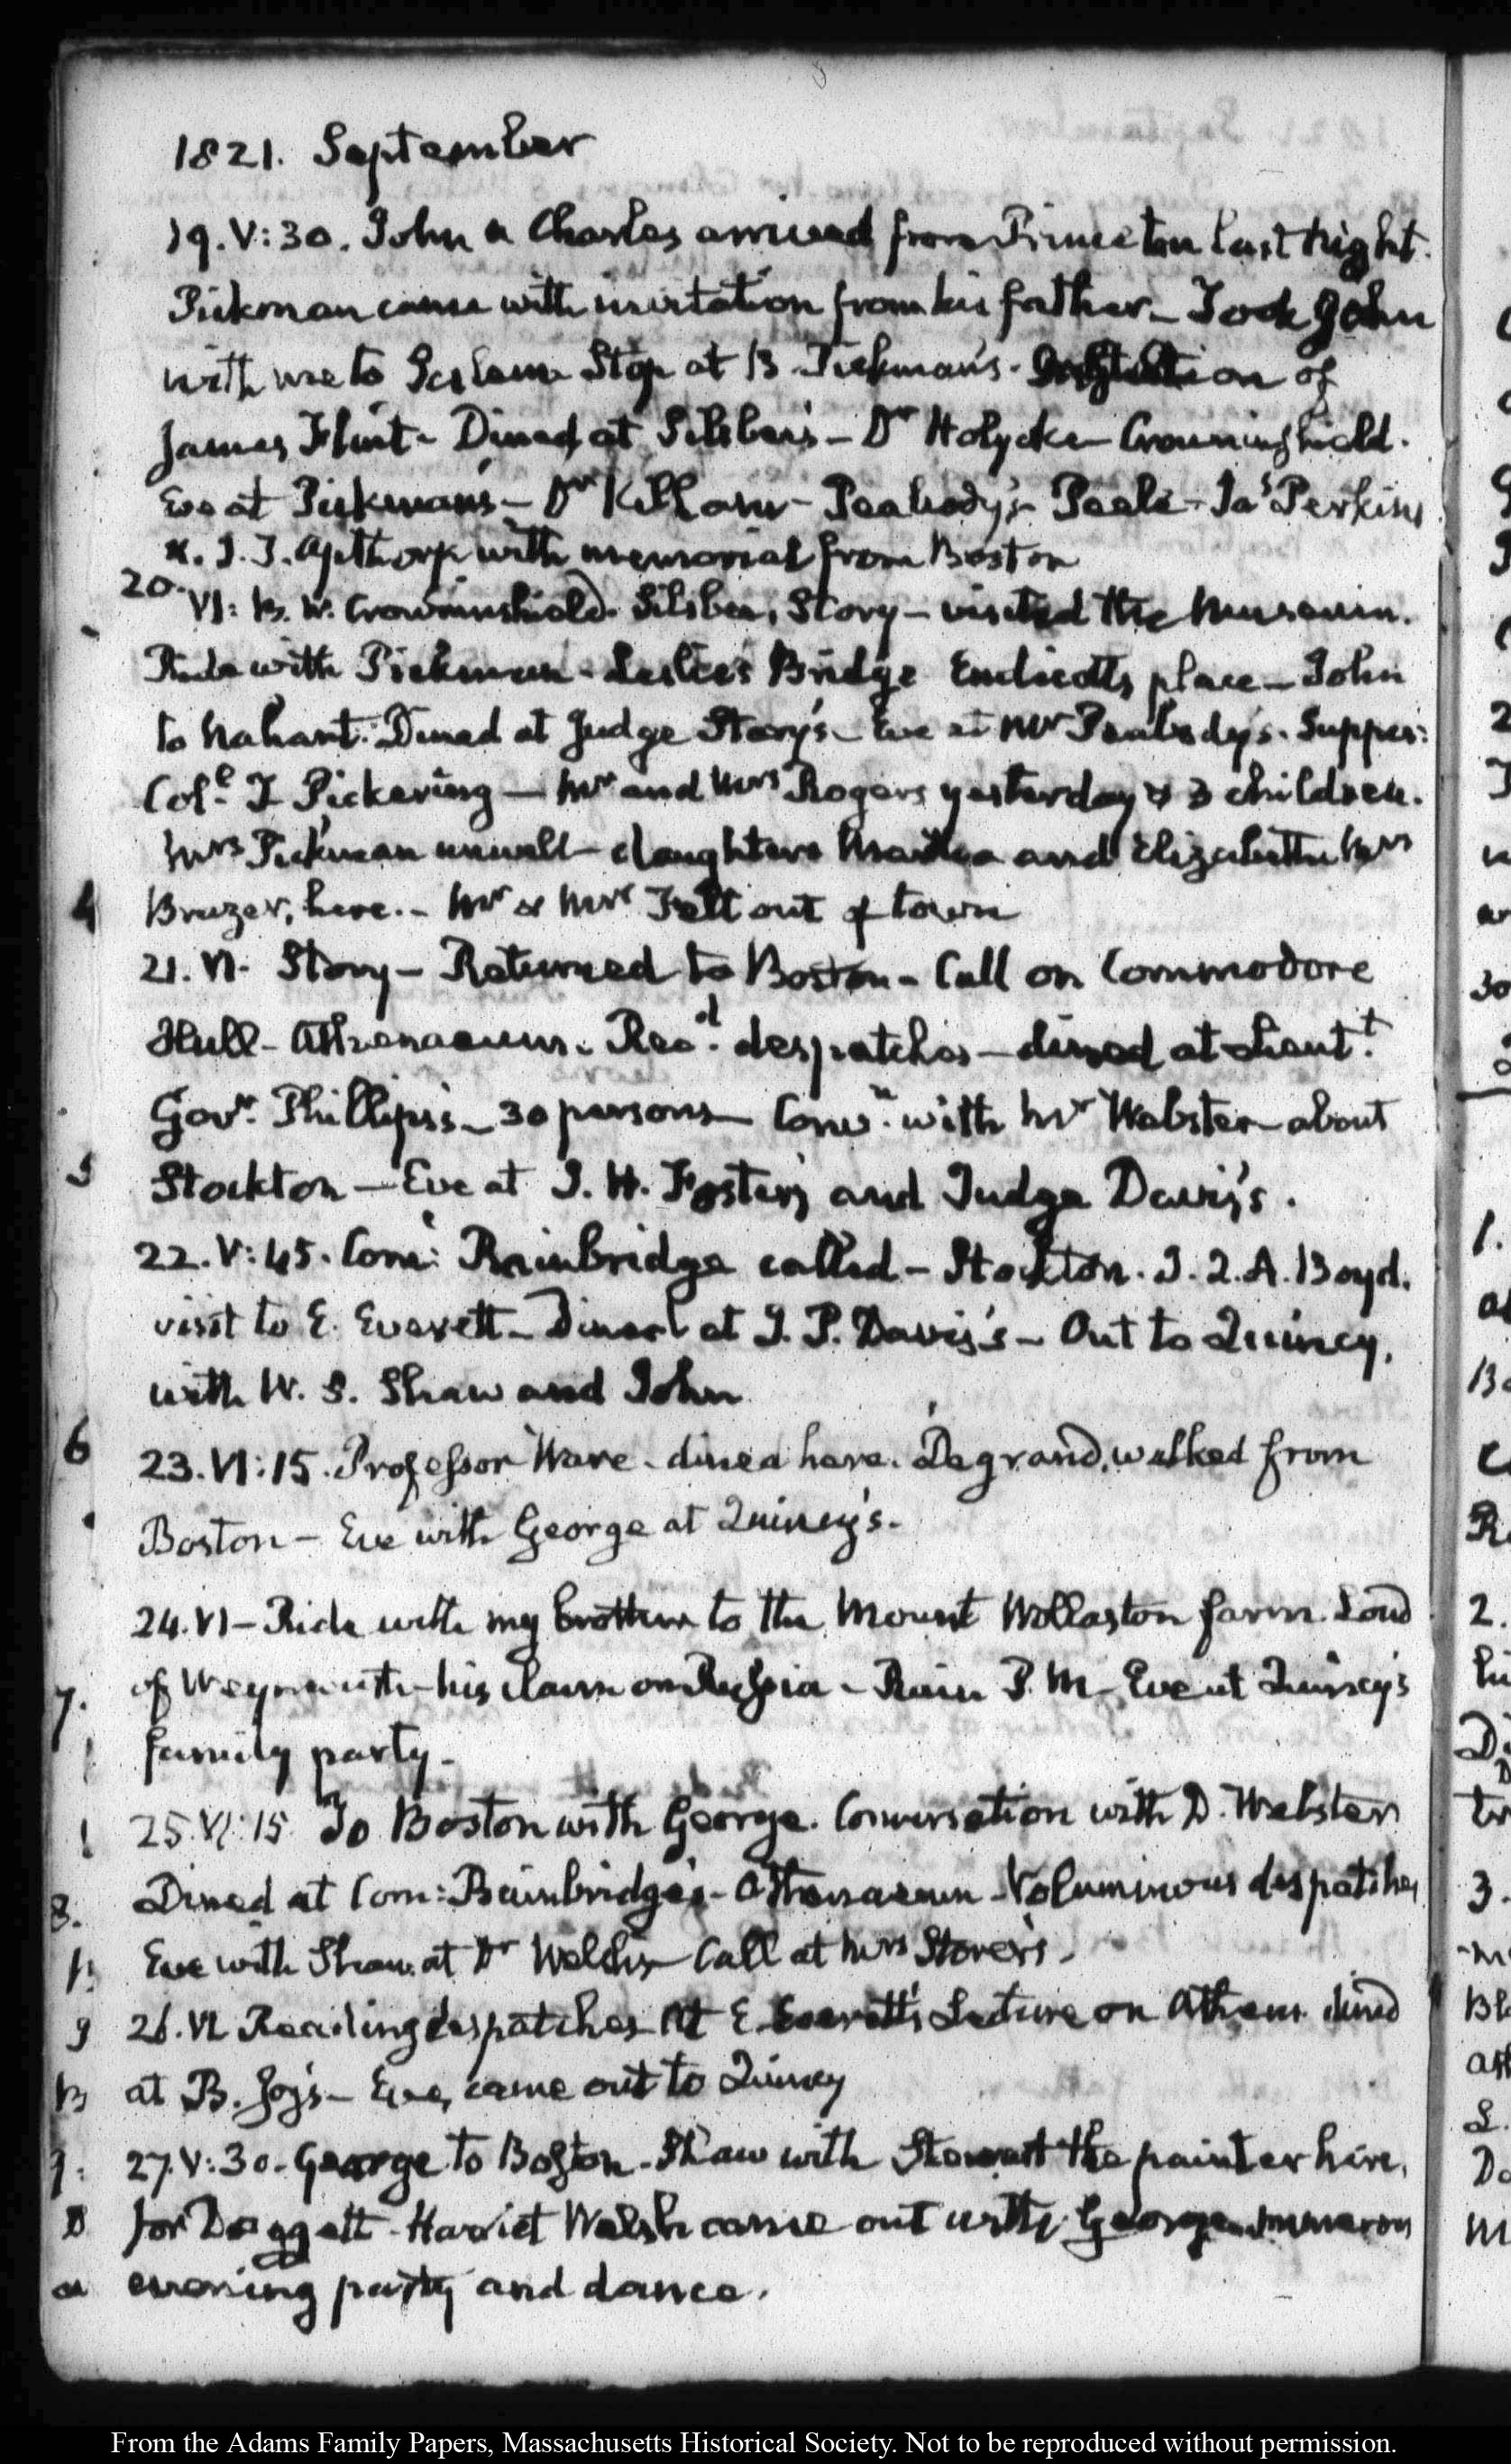 1821. September
19. V:30. John & Charles arrived from Princeton last Night.
Pickman came with invitation from his father_ Took John
with me to Salem Stop at B. Pickman's. of
James Flint_ Dined at Silsbee's_ Dr Holyoke Crowninshield.
Eve at Pickman's_ Dr Kilham_ Peabody's Peele_ Jas Perkins
& J. T. Apthorp with memorial from Boston
20. VI: B. W. Crowninshield. Silsbee, Story_ visited the Museum.
Ride with Pickman_ Leslie's Bridge Endicott's place_ John
to Nahant. Dined at Judge Story's_ Eve at Mr Peabody's. Supper:
Col. T Pickering_ Mr and Mrs Rogers yesterday & 3 children.
Mrs Pickman unwell_ daughters Martha and Elizabeth Mrs
4 Brazer, here._ Mr & Mrs Felt out of town
21. VI. Story_ Returned to Boston_ Call on Commodore
Hull_ Athenaeum. Recd. despatches_ dined at Lieutt.
Govr. Phillips's_ 30 persons_ Convn. with Mr Webster about
5 Stockton_ Eve at J. H. Foster's and Judge Davis's.
22. V:45. Com: Bainbridge called_ Stockton. J. Q. A. Boyd.
visit to E. Everett_ Dined at J. P. Davis's_ Out to Quincy,
with W. S. Shaw and John
6 23. VI:15. Professor Ware. dined here. Degrand, walked from
Boston_ Eve with George at Quincy's.
24. VI_ Ride with my brother to the Mount Wollaston farm. Loud
7. of Weymouth_ his claim on Russia_ Rain P. M_ Eve at Quincy's
family party_
25. VI:15 To Boston with George. Conversation with D. Webster
8. Dined at Com: Bainbridge's_ Athenaeum_ Voluminous despatches
Eve with Shaw at Dr Welsh's_ Call at Mrs Storer's_
9 26. VI Reading despatches At E. Everett's Lecture on Athens. dined
at B. Joy's_ Eve, came out to Quincy
27. V:30. George to Boston_ Shaw with Stewart the painter here,
for Doggett_ Harriet Welsh came out with George. numerous
evening party and dance.
From the Adams Family Papers, Massachusetts Historical Society. Not to be reproduced without permission.